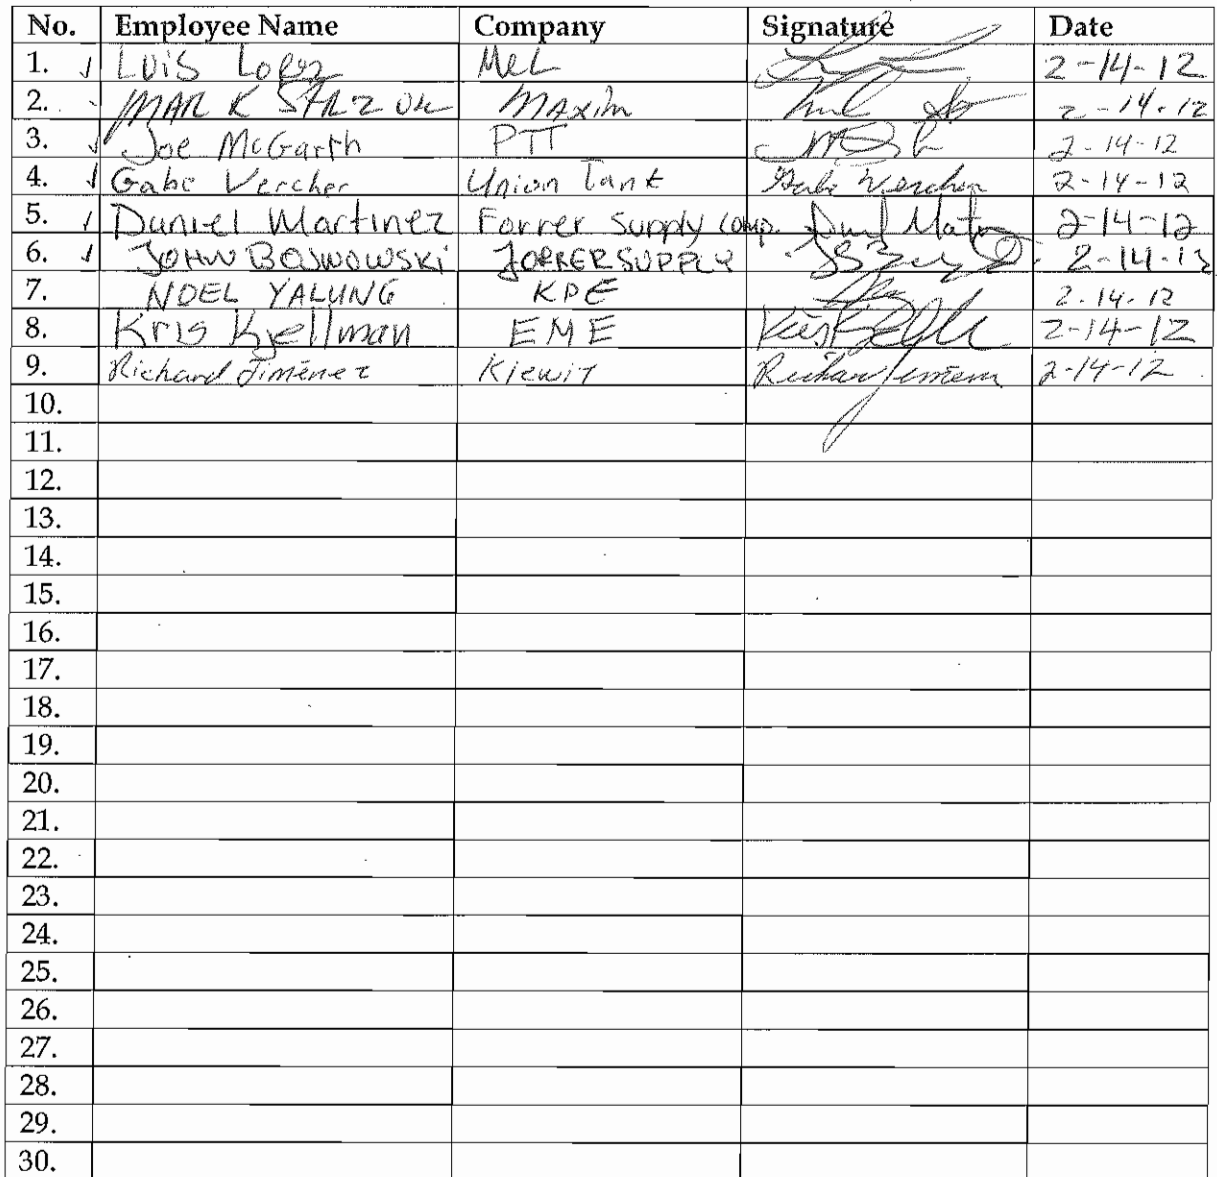 No. Employee Name Company Signature Date
1. Luis Lopez MCL 2-14-12
2. MARK STRZOK MAXim 2-14-12
3. Joe McGarth PTT 2-14-12
4. Gabe Vercher Union Tank Gabe Vercher 2-14-12
5. Daniel Martinez Forrer Supply comp. 2-14-12
6. JOHN BOJNOWSKi FORRER SUPPLY 2-14-12
7. NOEL YALUNG KPE 2-14-12
8. Kris Kjellman EME 2-14-12
9. Richard Jimenez Kiewit 2-14-12
10.
11.
12.
13.
14.
15.
16.
17.
18.
19.
20.
21.
22.
23.
24.
25.
26.
27.
28.
29.
30.